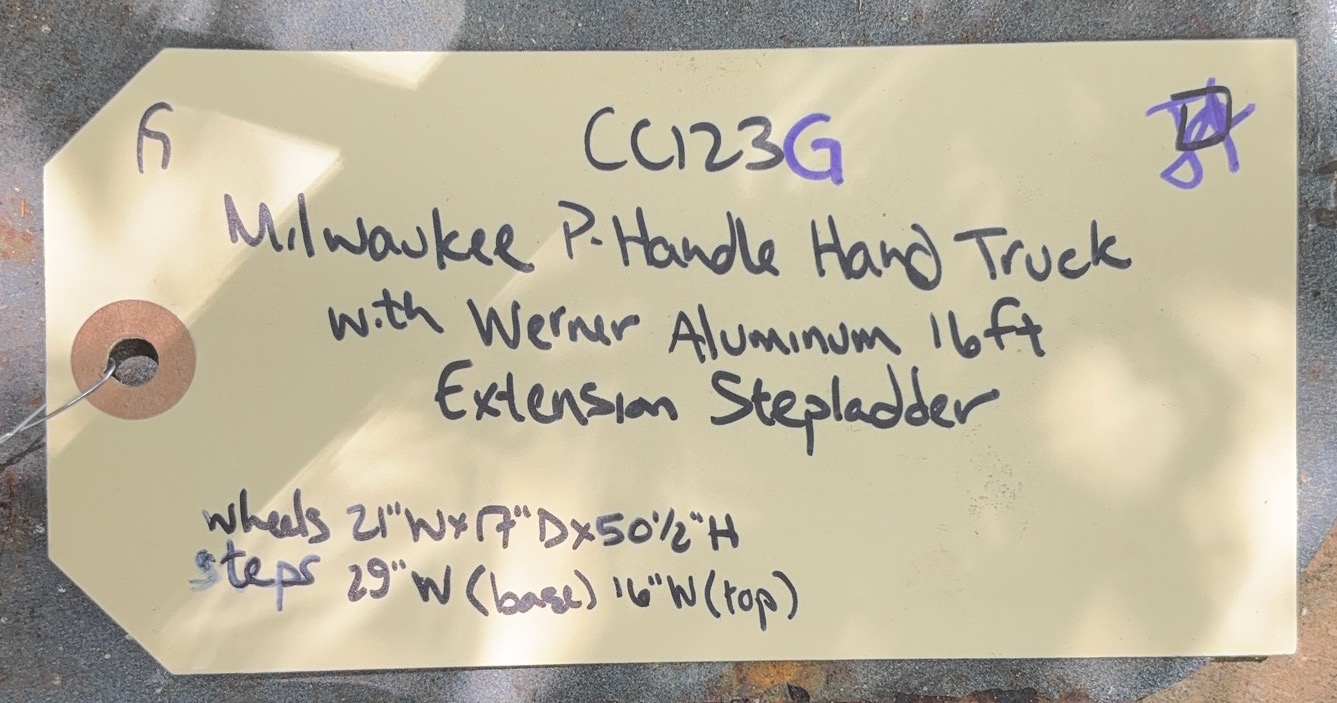 CC123G
Milwaukee P-Handle Hand Truck
with Werner Aluminum 16ft
Extension Stepladder
wheels 21"W x 17"D x 50 1/2"H
steps 29"W (base) 16"W (top)